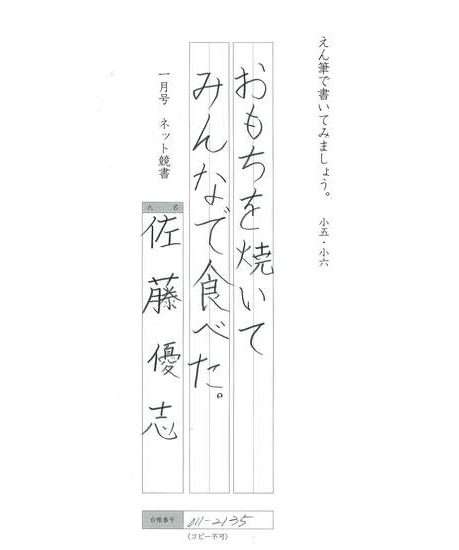 えん筆で書いてみましょう。 小五・小六
おもちを焼いて
みんなで食べた。
一月号 ネット競書
氏名
佐藤優志
台帳番号 011-2135
(コピー不可)